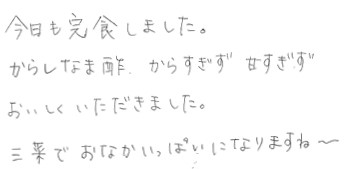 今日も完食しました。
からしなま酢、からすぎず 甘すぎず
おいしくいただきました。
三菜でおなかいっぱいになりますね〜